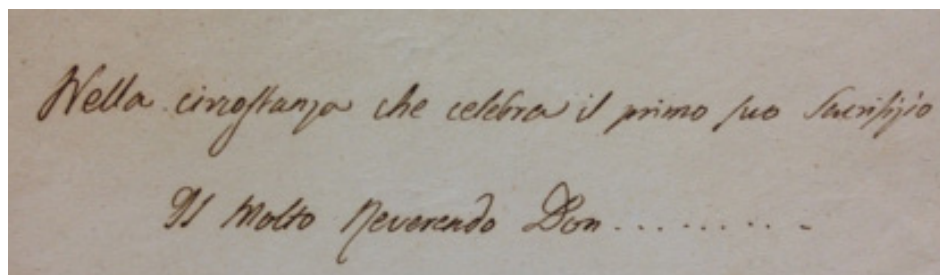 Nella circostanza che celebra il primo suo Sacrifizio
Il Molto Reverendo Don . . . . . . . . .